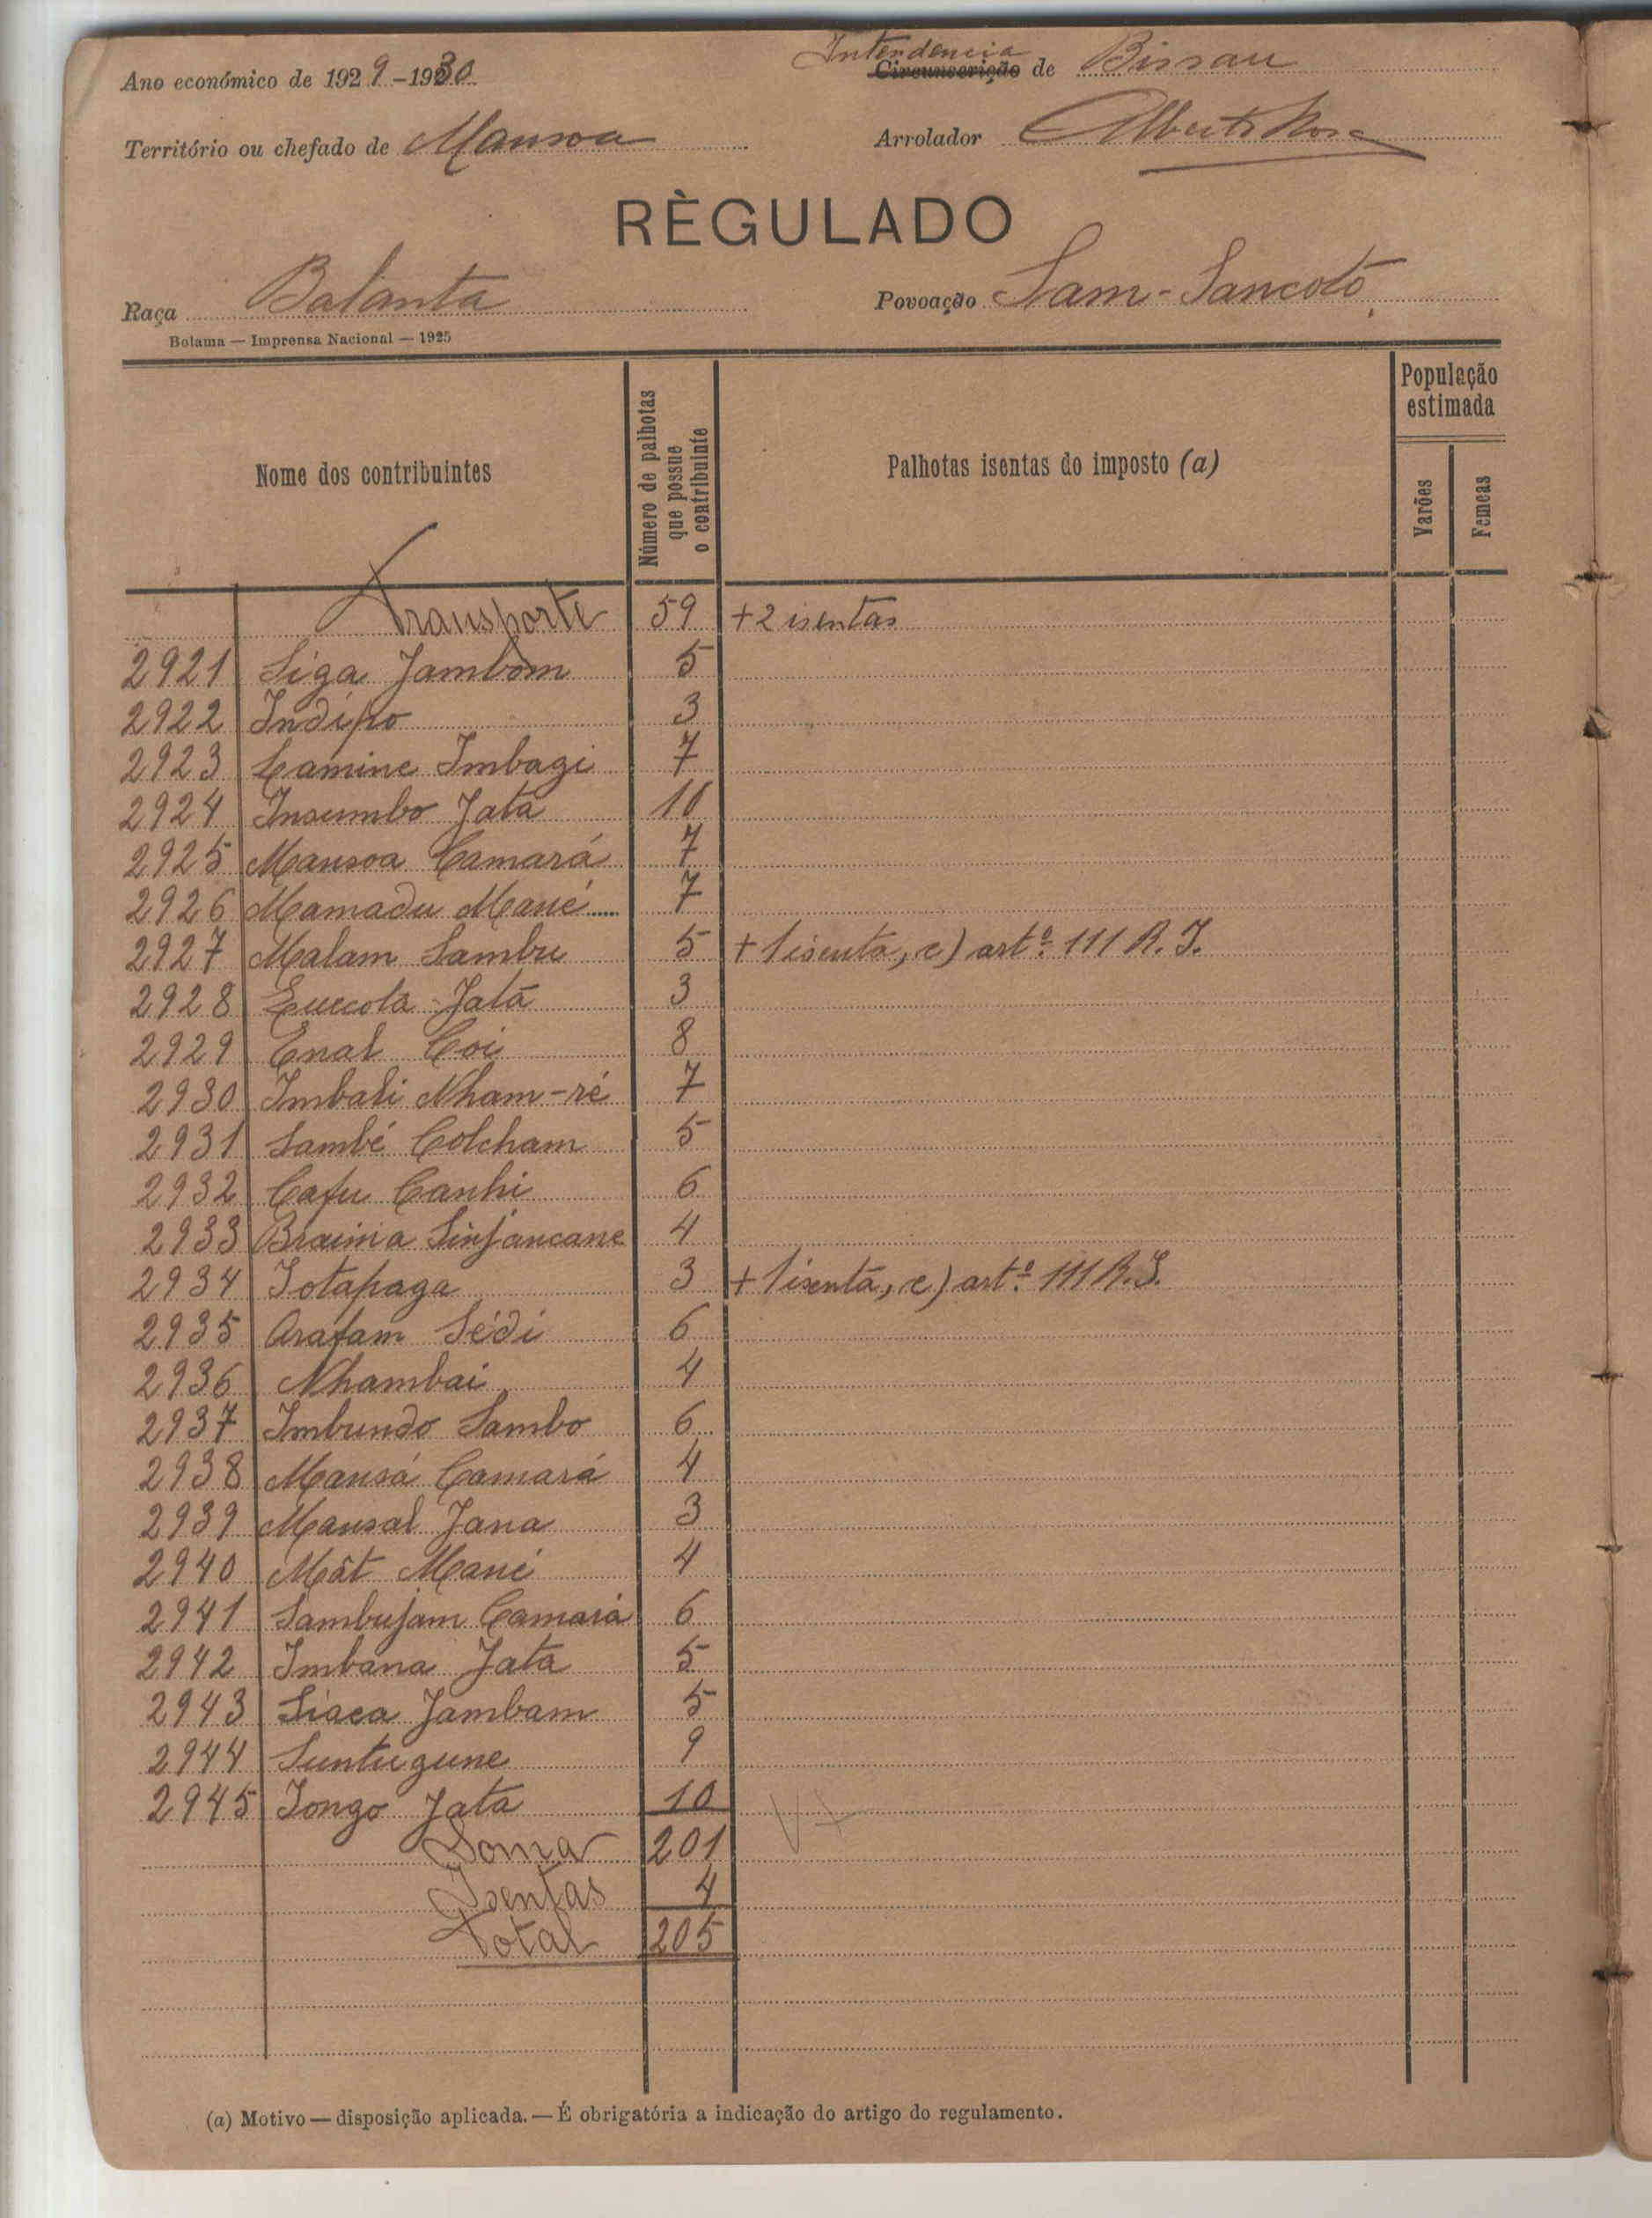 Ano económico de 1929-1930
Intendencia
Circunscrição de Bissau
Território ou chefado de Mansoa
Arrolador Alberto Rosa
RÈGULADO
Raça Balanta
Povoação Sam-Sancotó
Bolama — Imprensa Nacional — 1925
Nome dos contribuintes
Número de palhotas que possue o contribuinte
Palhotas isentas do imposto (a)
População estimada
Varões
Femeas
Transporte 59 +2 isentas
2921 Siga Jambom 5
2922 Indipo 3
2923 Lamine Imbagi 7
2924 Insumbo Jatá 10
2925 Mansoa Camará 7
2926 Mamadu Mané 7
2927 Malam Sambu 5 +1 isenta, c) artº 111 R. I.
2928 Euccotá Jatá 3
2929 Enal Coi 8
2930 Imbali Nham-ré 7
2931 Sambé Colcham 5
2932 Cafu Canhi 6
2933 Braima Sinjancane 4
2934 Iotapaga 3 +1 isenta, c) artº 111 R. I.
2935 Arafam Sédi 6
2936 Nhambai 4
2937 Imbundo Sambo 6
2938 Mansá Camará 4
2939 Mansal Jana 3
2940 Mât Mané 4
2941 Sambujam Camará 6
2942 Imbana Jatá 5
2943 Siaca Jambam 5
2944 Suntugune 9
2945 Iongo Jatá 10
Soma 201
Isentas 4
Total 205
(a) Motivo — disposição aplicada. — É obrigatória a indicação do artigo do regulamento.